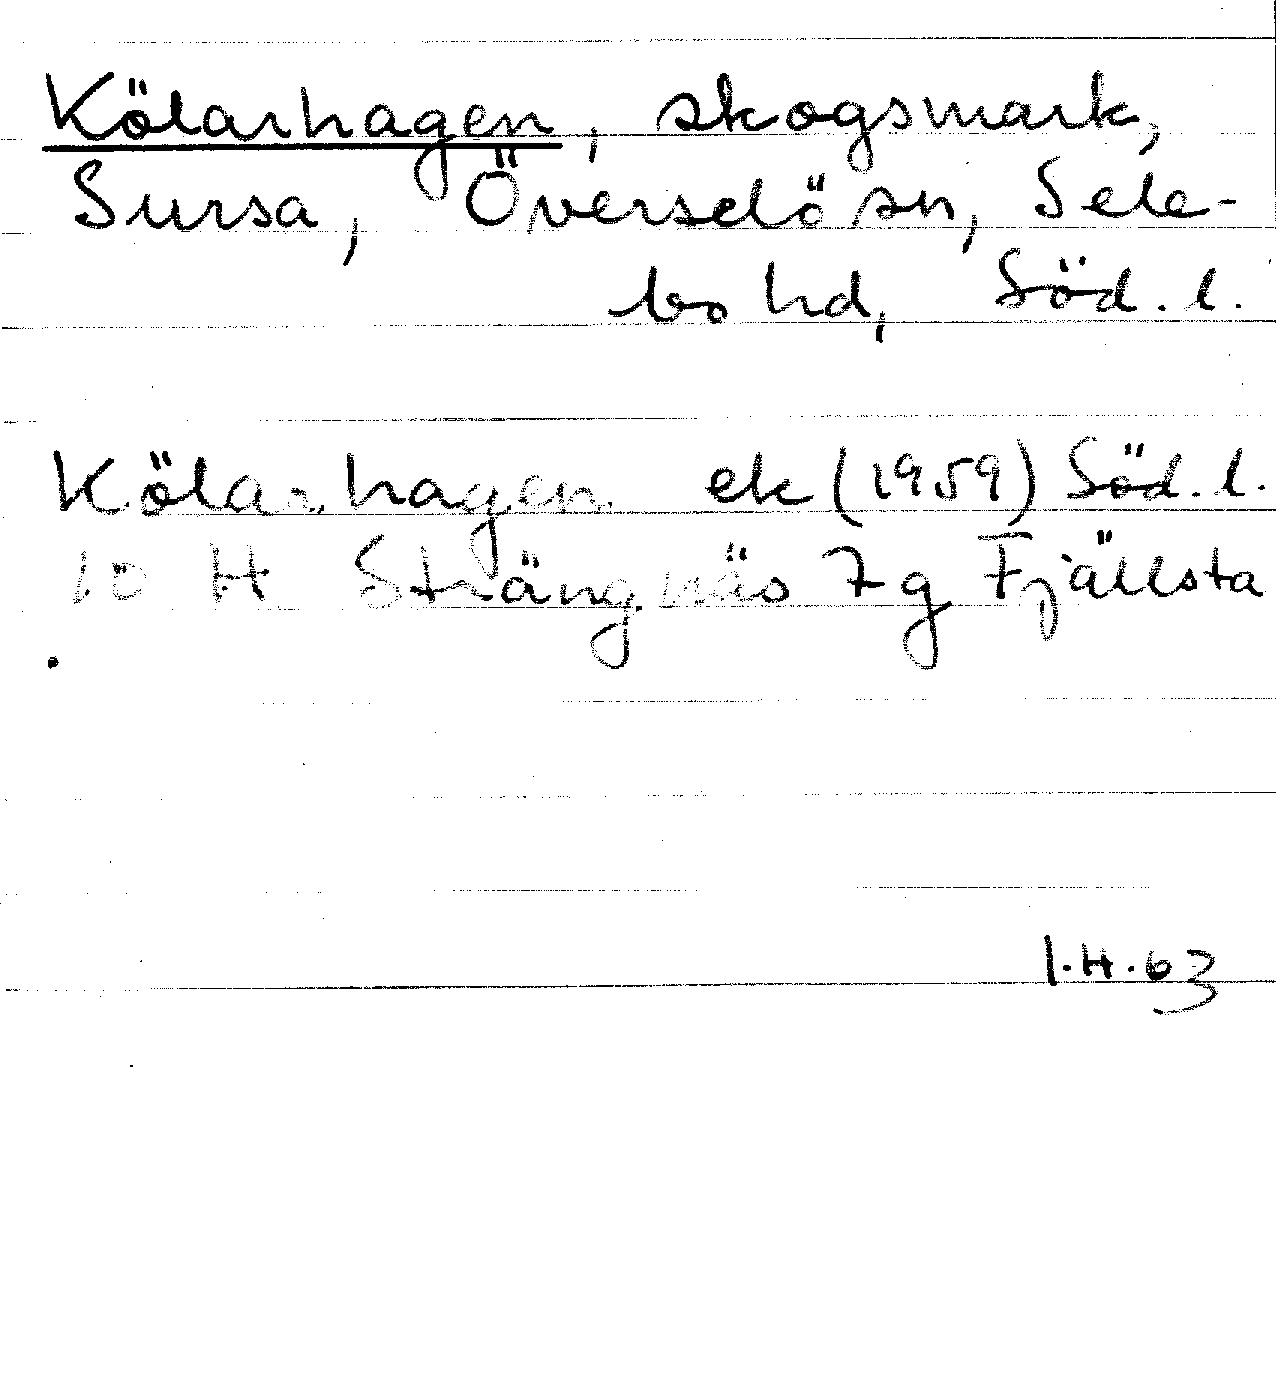 Kölarhagen, skogsmark,
Sursa, Överselö sn, Sele-
bo hd, Söd. l.
Kölarhagen ek (1959) Söd. l.
10 H Strängnäs 7 g Fjällsta
I.H.63